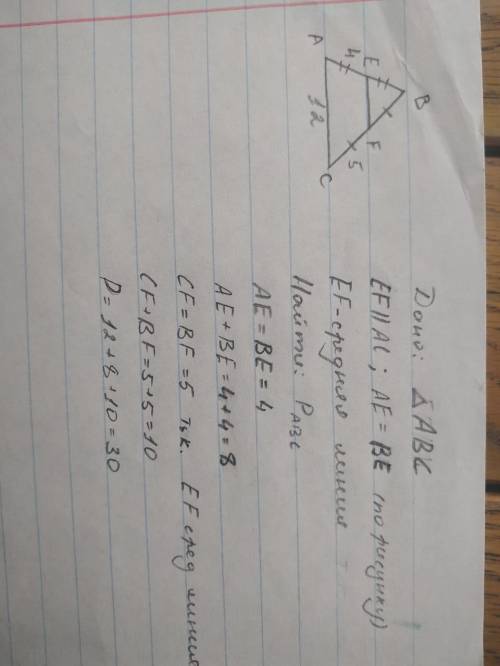 B
E
4
F
5
A
12
C
Дано: △ABC
EF||AC; AE = BE (по рисунку)
EF-средняя линия
Найти: PABC
AE = BE = 4
AE + BE = 4+4 = 8
CF = BF = 5 т.к. EF сред линия
CF + BF = 5+5 = 10
P = 12 + 8 + 10 = 30